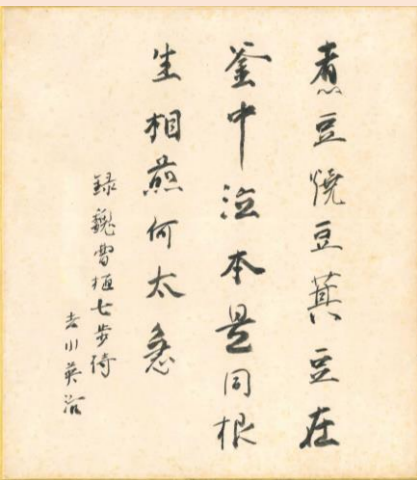 煮豆燒豆萁豆在
釜中泣本是同根
生相煎何太急
録魏曹植七步詩
吉川英治